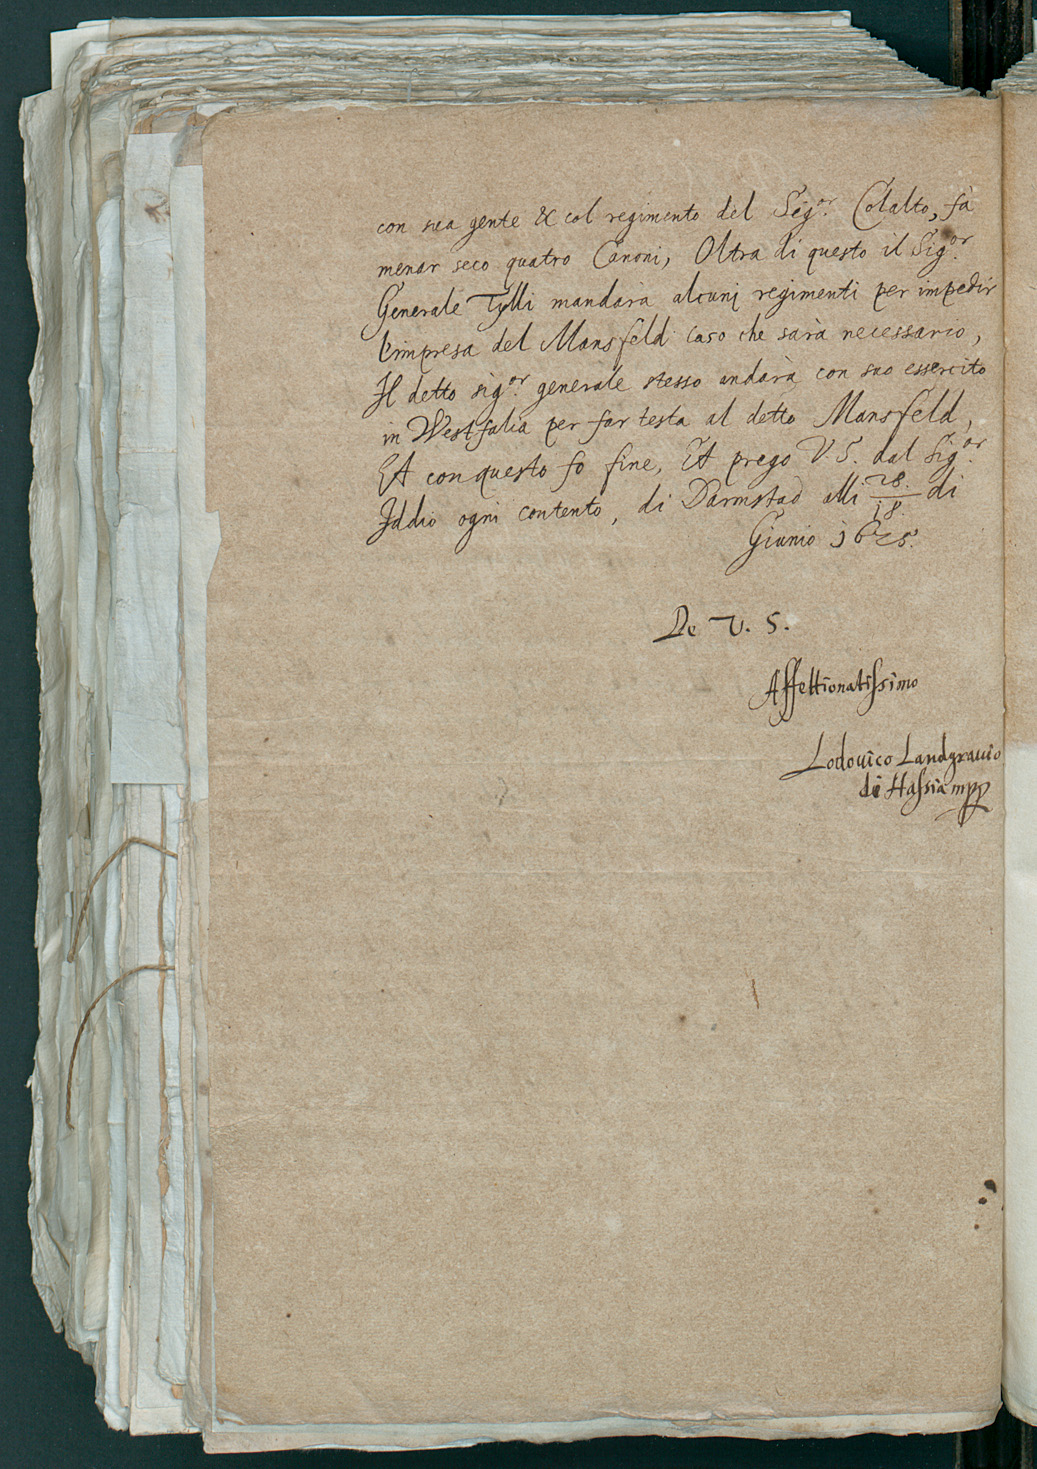 con sua gente & col regimento del Sigor. Colalto, fà
menar seco quatro Canoni, Oltra di questo il Sigor.
Generale Tylli mandarà alcuni regimenti per impedir
l'impresa del Mansfeld caso che sarà necessario,
Il detto sigor. generale stesso andarà con suo essercito
in Westfalia per far testa al detto Mansfeld,
Et con questo fo fine, Et prego V. S. dal Sigor.
Iddio ogni contento, di Darmstad alli 28./18. di
Giunio 1625.
De V. S.
Affettionatissimo
Lodouico Landgrauio
di Hassia mpp